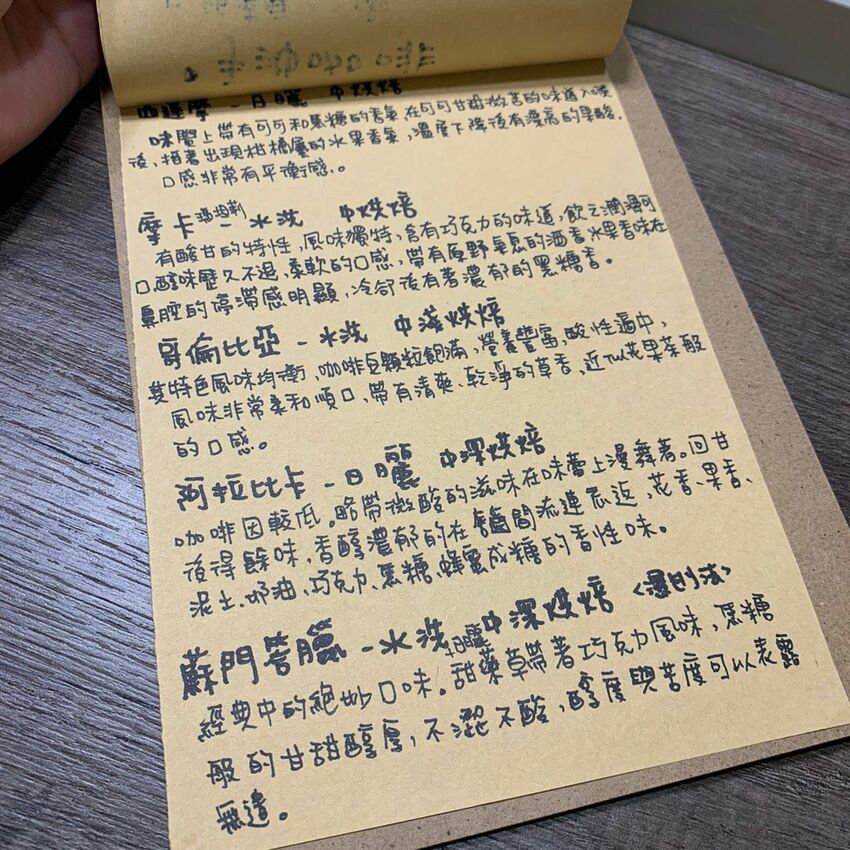 西達摩 - 日曬 中烘焙
味覺上帶有可可和焦糖的香氣,在可可甘甜微苦的味道入喉
後,接著出現柑橘屬的水果香氣,溫度下降後有濃高的果酸,
口感非常有平衡感.。
摩卡瑪塔利 - 水洗 中烘焙
有酸甘的特性,風味獨特,含有巧克力的味道,飲之潤滑可
口,醇味歷久不退,柔軟的口感,帶有原野氣息的酒香,水果香味在
鼻腔的停滯感明顯,冷卻後有著濃郁的黑糖香。
哥倫比亞 - 水洗 中淺烘焙
其特色風味均衡、咖啡豆顆粒飽滿,營養豐富,酸性適中,
風味非常柔和順口、帶有清爽、乾淨的草香、近似花果茶般
的口感。
阿拉比卡 - 日曬 中深烘焙
咖啡因較低。略帶微酸的滋味在味蕾上漫舞著。回甘
後得餘味,香醇濃郁的在 間流連忘返,花香、果香、
泥土、奶油、巧克力、焦糖、蜂蜜或糖的香性味。
蘇門答臘 - 水洗 日曬 中深烘焙 <濕刨法>
經典中的絕妙口味。甜藥草帶著巧克力風味,焦糖
般的甘甜醇厚,不澀不酸,醇度與苦度可以表露
無遺。